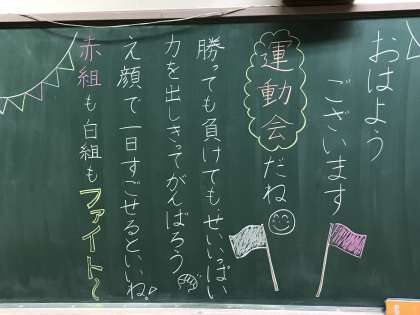 おはよう
ございます
運動会だね
勝っても負けても、せいいっぱい
力を出しきってがんばろう
え顔で一日すごせるといいね。
赤組も白組もファイト〜